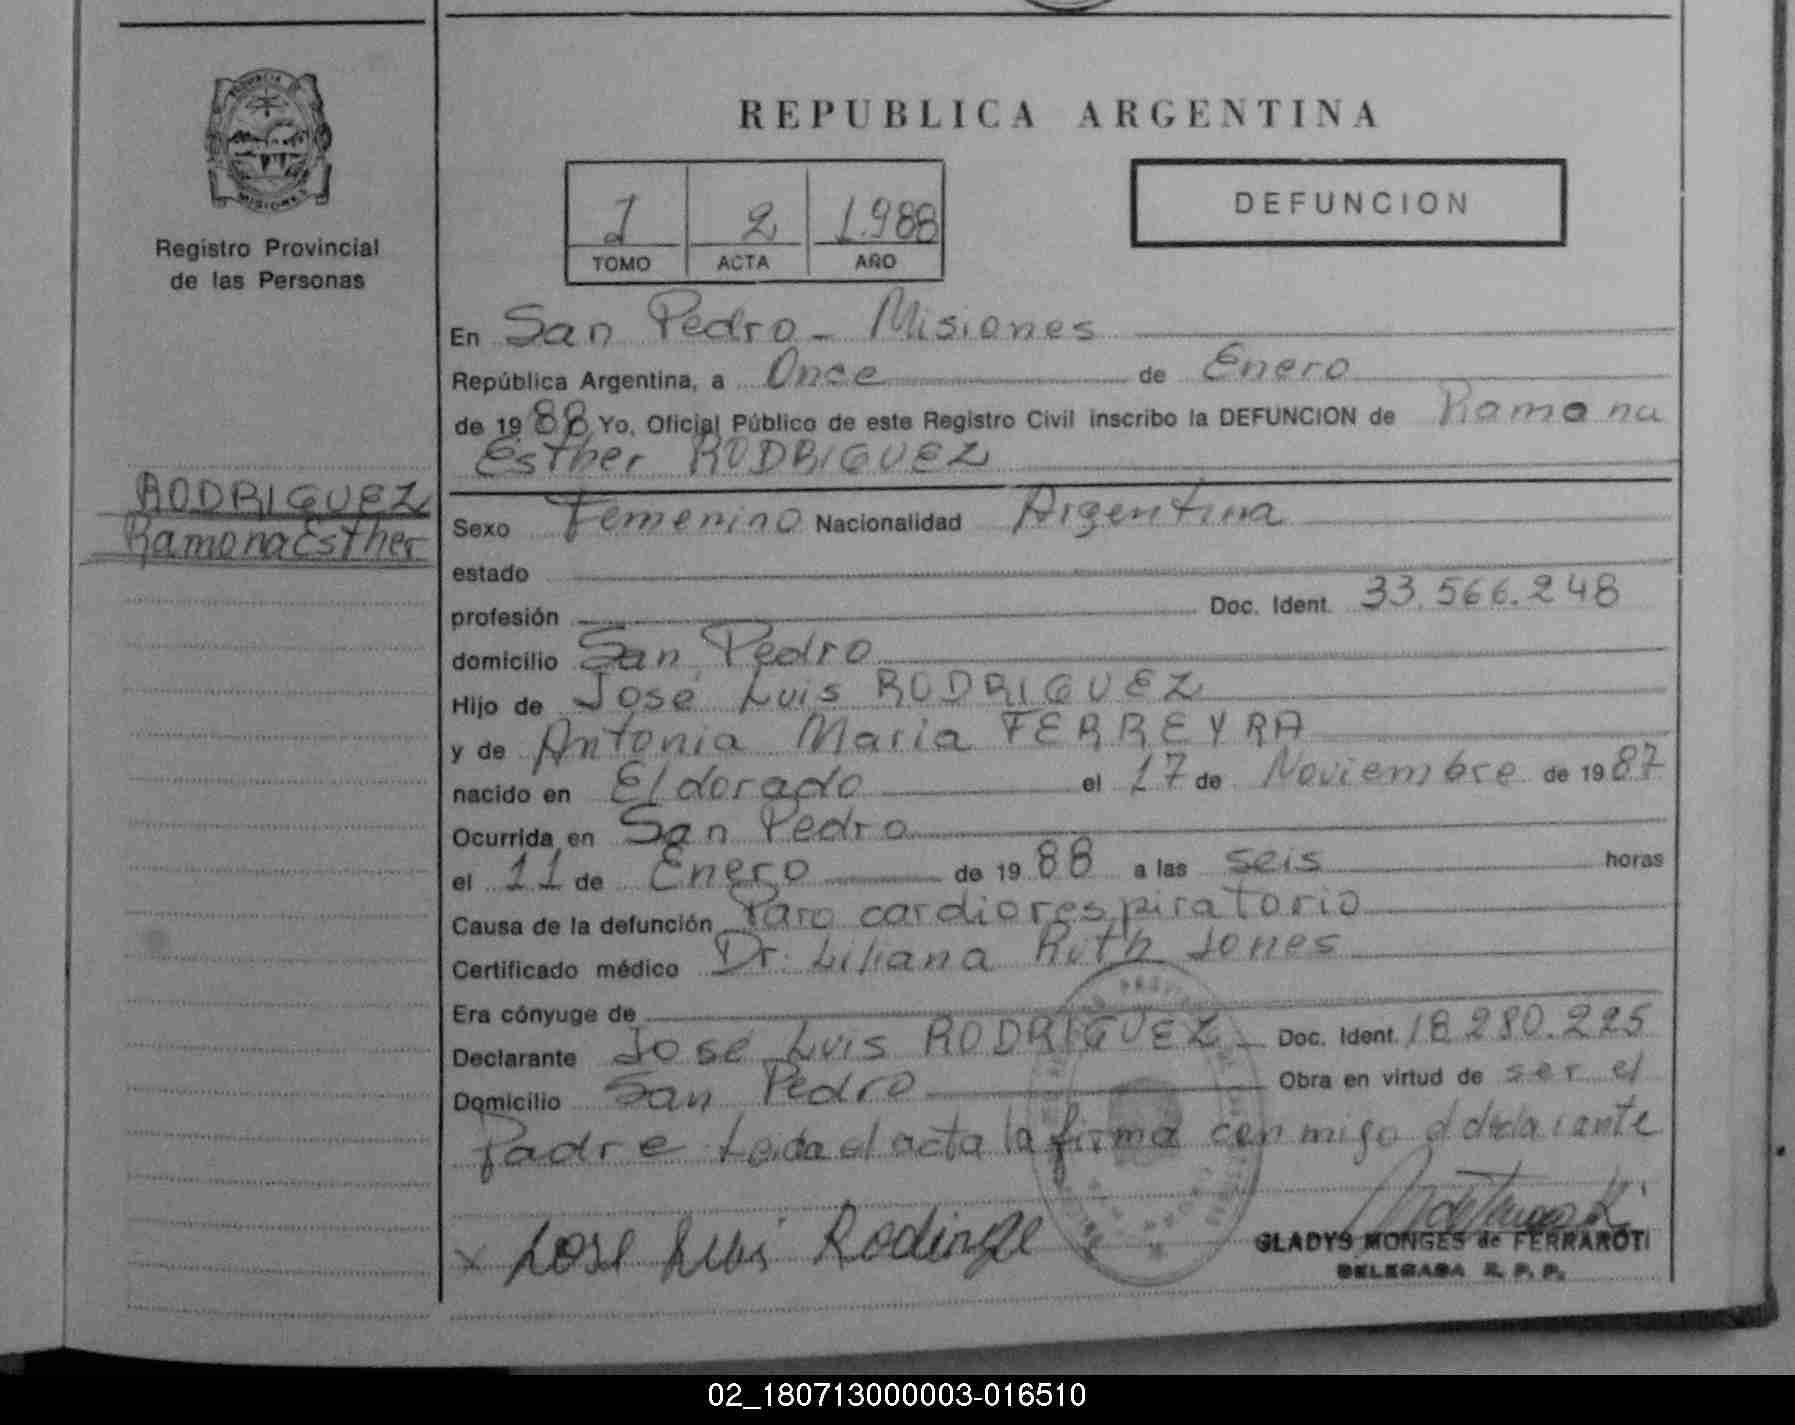 PROVINCIA DE
MISIONES
Registro Provincial
de las Personas
RODRIGUEZ
Ramona Esther
REPUBLICA ARGENTINA
1 2 1.988
TOMO ACTA AÑO
DEFUNCION
En San Pedro - Misiones
República Argentina, a Once de Enero
de 1988 Yo, Oficial Público de este Registro Civil inscribo la DEFUNCION de Ramona
Esther RODRIGUEZ
Sexo Femenino Nacionalidad Argentina
estado
profesión Doc. Ident. 33.566.248
domicilio San Pedro
Hijo de José Luis RODRIGUEZ
y de Antonia Maria FERREYRA
nacido en Eldorado el 17 de Noviembre de 1987
Ocurrida en San Pedro
el 11 de Enero de 1988 a las seis horas
Causa de la defunción Paro cardiorespiratorio
Certificado médico Dr. Liliana Ruth Jones
Era cónyuge de
Declarante José Luis RODRIGUEZ Doc. Ident. 18.280.225
Domicilio San Pedro Obra en virtud de ser el
Padre Leida el acta la firma conmigo el declarante
x Jose Luis
GLADYS MONGES de FERRAROTI
DELEGADA R. P. P.
02_180713000003-016510